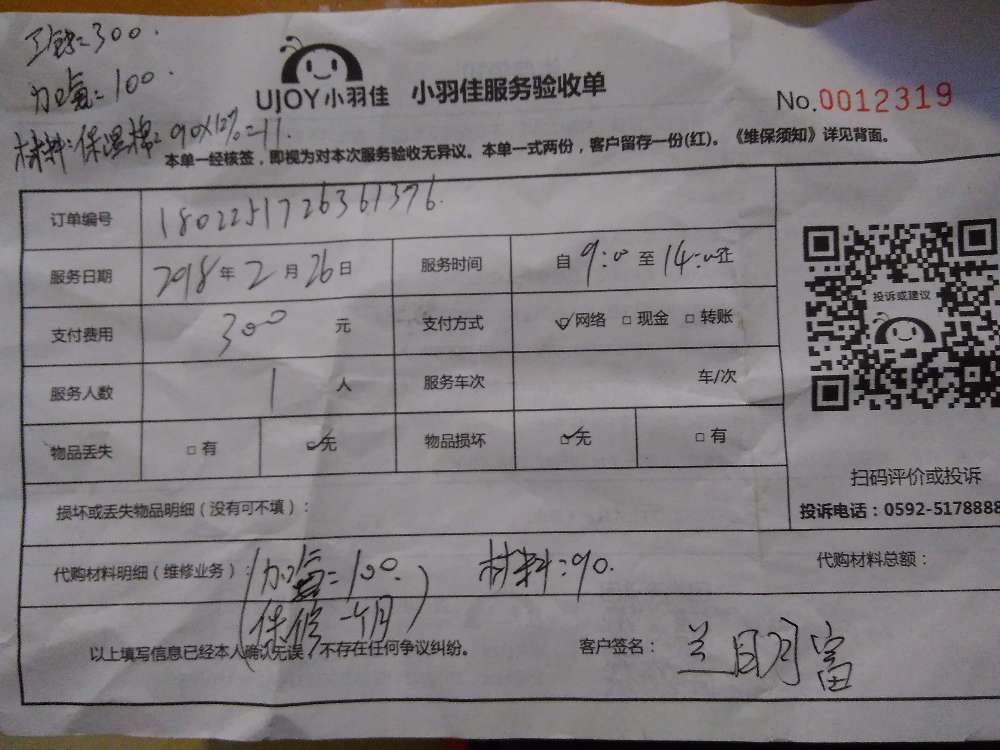 =300.
加=100.
材料:保温棉:90×12%=11.
UJOY小羽佳 小羽佳服务验收单
No.0012319
本单一经核签，即视为对本次服务验收无异议。本单一式两份，客户留存一份(红)。《维保须知》详见背面。
订单编号 1802251726361376.
服务日期 2018年2月26日 服务时间 自9:00至14:00止
支付费用 300 元 支付方式 ☑网络 □现金 □转账
服务人数 1 人 服务车次 车/次
物品丢失 □有 ☑无 物品损坏 ☑无 □有
投诉或建议
扫码评价或投诉
投诉电话：0592-5178888
损坏或丢失物品明细（没有可不填）：
代购材料明细（维修业务）：(加=100. 材料:90. 代购材料总额：
保修一个月)
以上填写信息已经本人确认无误，不存在任何争议纠纷。 客户签名：